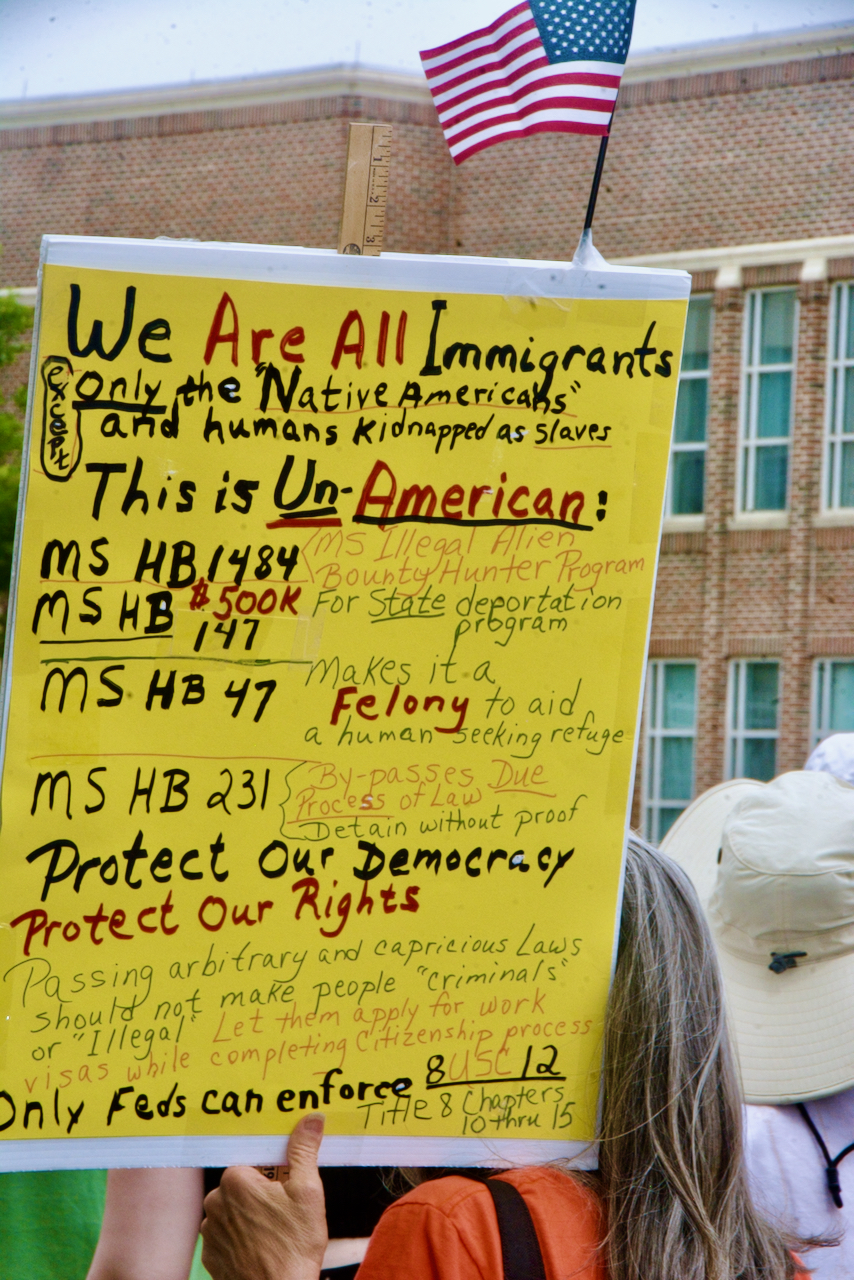 We Are All Immigrants
except Only the "Native Americans"
and humans kidnapped as slaves
This is Un-American:
MS HB 1484 MS Illegal Alien
Bounty Hunter Program
MS HB $500K For State deportation
147 program
MS HB 47 Makes it a
Felony to aid
a human seeking refuge
MS HB 231 By-passes Due
Process of Law
Detain without proof
Protect Our Democracy
Protect Our Rights
Passing arbitrary and capricious Laws
should not make people "criminals"
or "Illegal" Let them apply for work
visas while completing Citizenship process
Only Feds can enforce 8 USC 12
Title 8 Chapters
10 thru 15
1
2
3